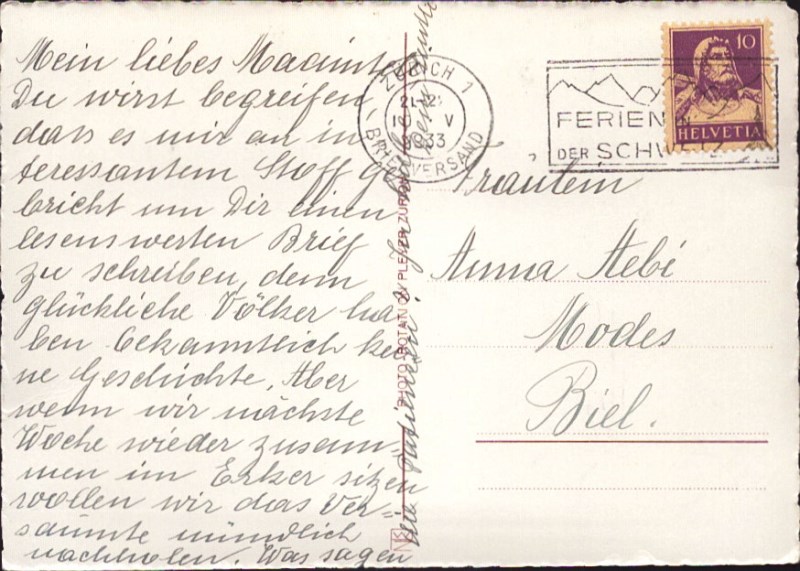 Mein liebes
Du wirst begreifen,
dass es mir an in
teressantem Stoff ge
bricht um Dir einen
lesenswerten Brief
zu schreiben, denn
glückliche Völker ha
ben bekanntlich kei
ne Geschichte. Aber
wenn wir nächste
Woche wieder zusam-
men im Erker sitzen
wollen wir das Ver-
säumte mündlich
nachholen. Was sagen
ZÜRICH 1
V
33
BRIEFVERSAND
FERIEN
DER
10
HELVETIA
PHOTO-BOTAN
ZÜRICH
Fräulein
Anna Aebi
Modes
Biel.